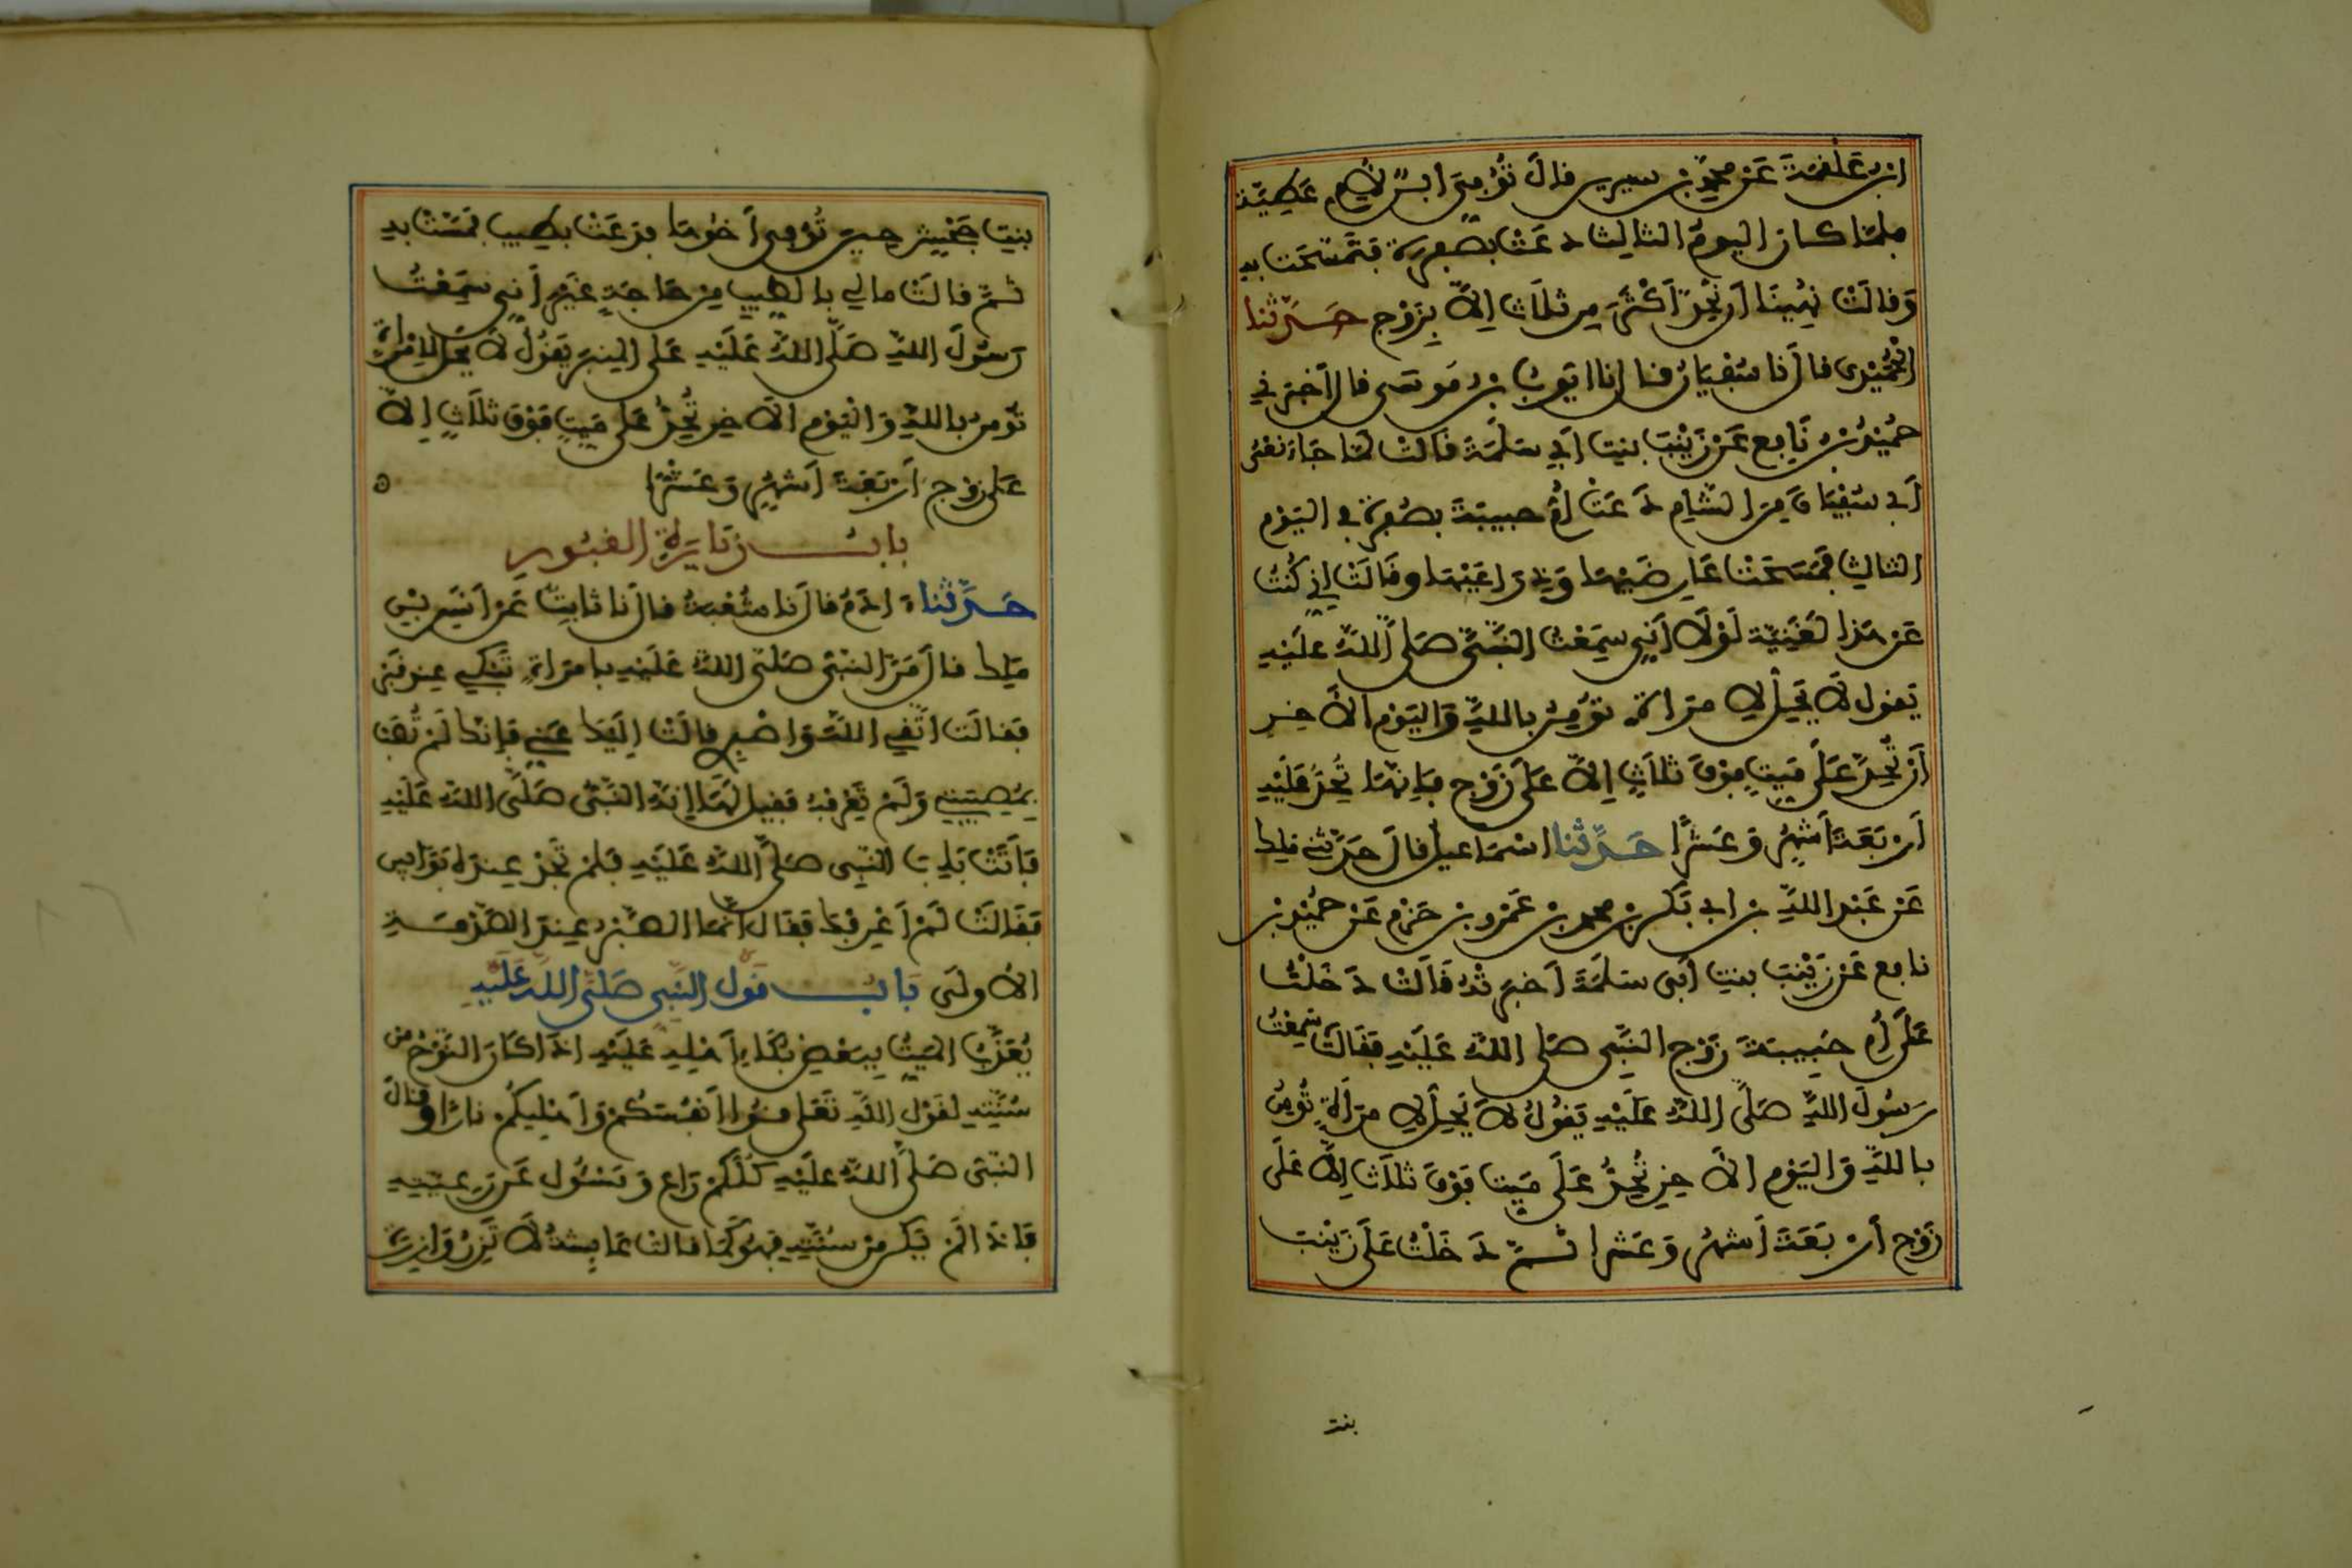 ابن علقمة عن محمد بن سيرين قال توفي ابن لام عطية
فلما كان اليوم الثالث دعت بصفرة فتمسحت به
وقالت نهينا ان نحد اكثر من ثلاث الا بزوج حدثنا
الحميدي قال نا سفيان قال نا ايوب بن موسى قال اخبرني
حميد بن نافع عن زينب بنت ابي سلمة قالت لما جاء نعي
ابي سفيان من الشام دعت ام حبيبة بصفرة في اليوم
الثالث فمسحت عارضيها وذراعيها وقالت اني كنت
عن هذا لغنية لولا اني سمعت النبي صلى الله عليه
يقول لا يحل لامراة تؤمن بالله واليوم الآخر
ان تحد على ميت فوق ثلاث الا على زوج فإنها تحد عليه
اربعة اشهر وعشرا حدثنا اسماعيل قال حدثني ملك
عن عبد الله بن ابي بكر بن محمد بن عمرو بن حزم عن حميد بن
نافع عن زينب بنت أبي سلمة أخبرته قالت دخلت
على أم حبيبة زوج النبي صلى الله عليه فقالت سمعت
رسول الله صلى الله عليه يقول لا يحل لامرأة تومن
بالله واليوم الآخر تحد على ميت فوق ثلاث إلا على
زوج أربعة أشهر وعشرا ثم دخلت على زينب
بنت
بنت جحش حين توفي أخوها فدعت بطيب فمست به
ثم قالت مالي بالطيب من حاجة غير أني سمعت
رسول الله صلى الله عليه على المنبر يقول لا يحل لامراة
تومن بالله واليوم الآخر تحد على ميت فوق ثلاث إلا
على زوج أربعة أشهر وعشرا ه
باب زيارة القبور
حدثنا ادم قال نا شعبة قال نا ثابت عن أنس بن
ملك قال مر النبي صلى الله عليه بامراة تبكي عند قبر
فقال اتقي الله واصبري قالت إليك عني فإنك لم تصب
بمصيبتي ولم تعرفه فقيل لها إنه النبي صلى الله عليه
فأتت باب النبي صلى الله عليه فلم تجد عنده بوابين
فقالت لم أعرفك فقال انما الصبر عند الصدمة
الأولى باب قول النبي صلى الله عليه
يعذب الميت ببعض بكاء أهله عليه اذا كان النوح من
سنته لقول الله تعلى قوا أنفسكم وأهليكم نارا وقال
النبي صلى الله عليه كلكم راع ومسئول عن رعيته
فاذا لم يكن من سنته فهو كما قالت عايشة لا تزر وازرة